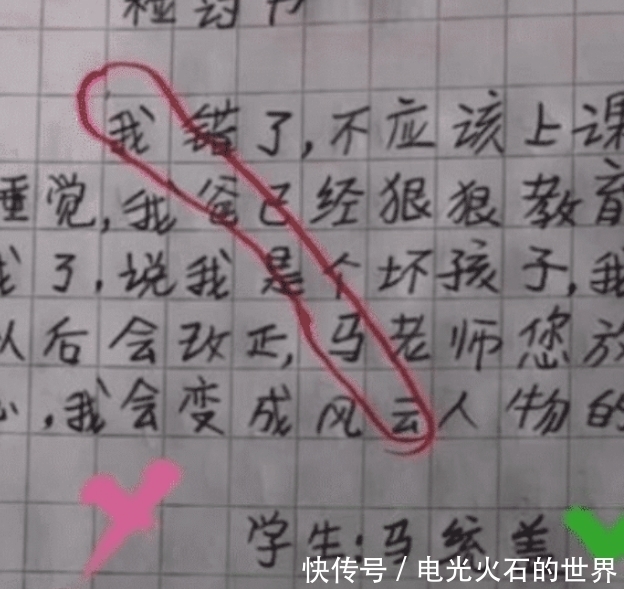 检讨书
我错了，不应该上课
睡觉，我爸已经狠狠教育
我了，说我是个坏孩子，我
以后会改正，马老师您放
心，我会变成风云人物的
学生：马
快传号/电光火石的世界